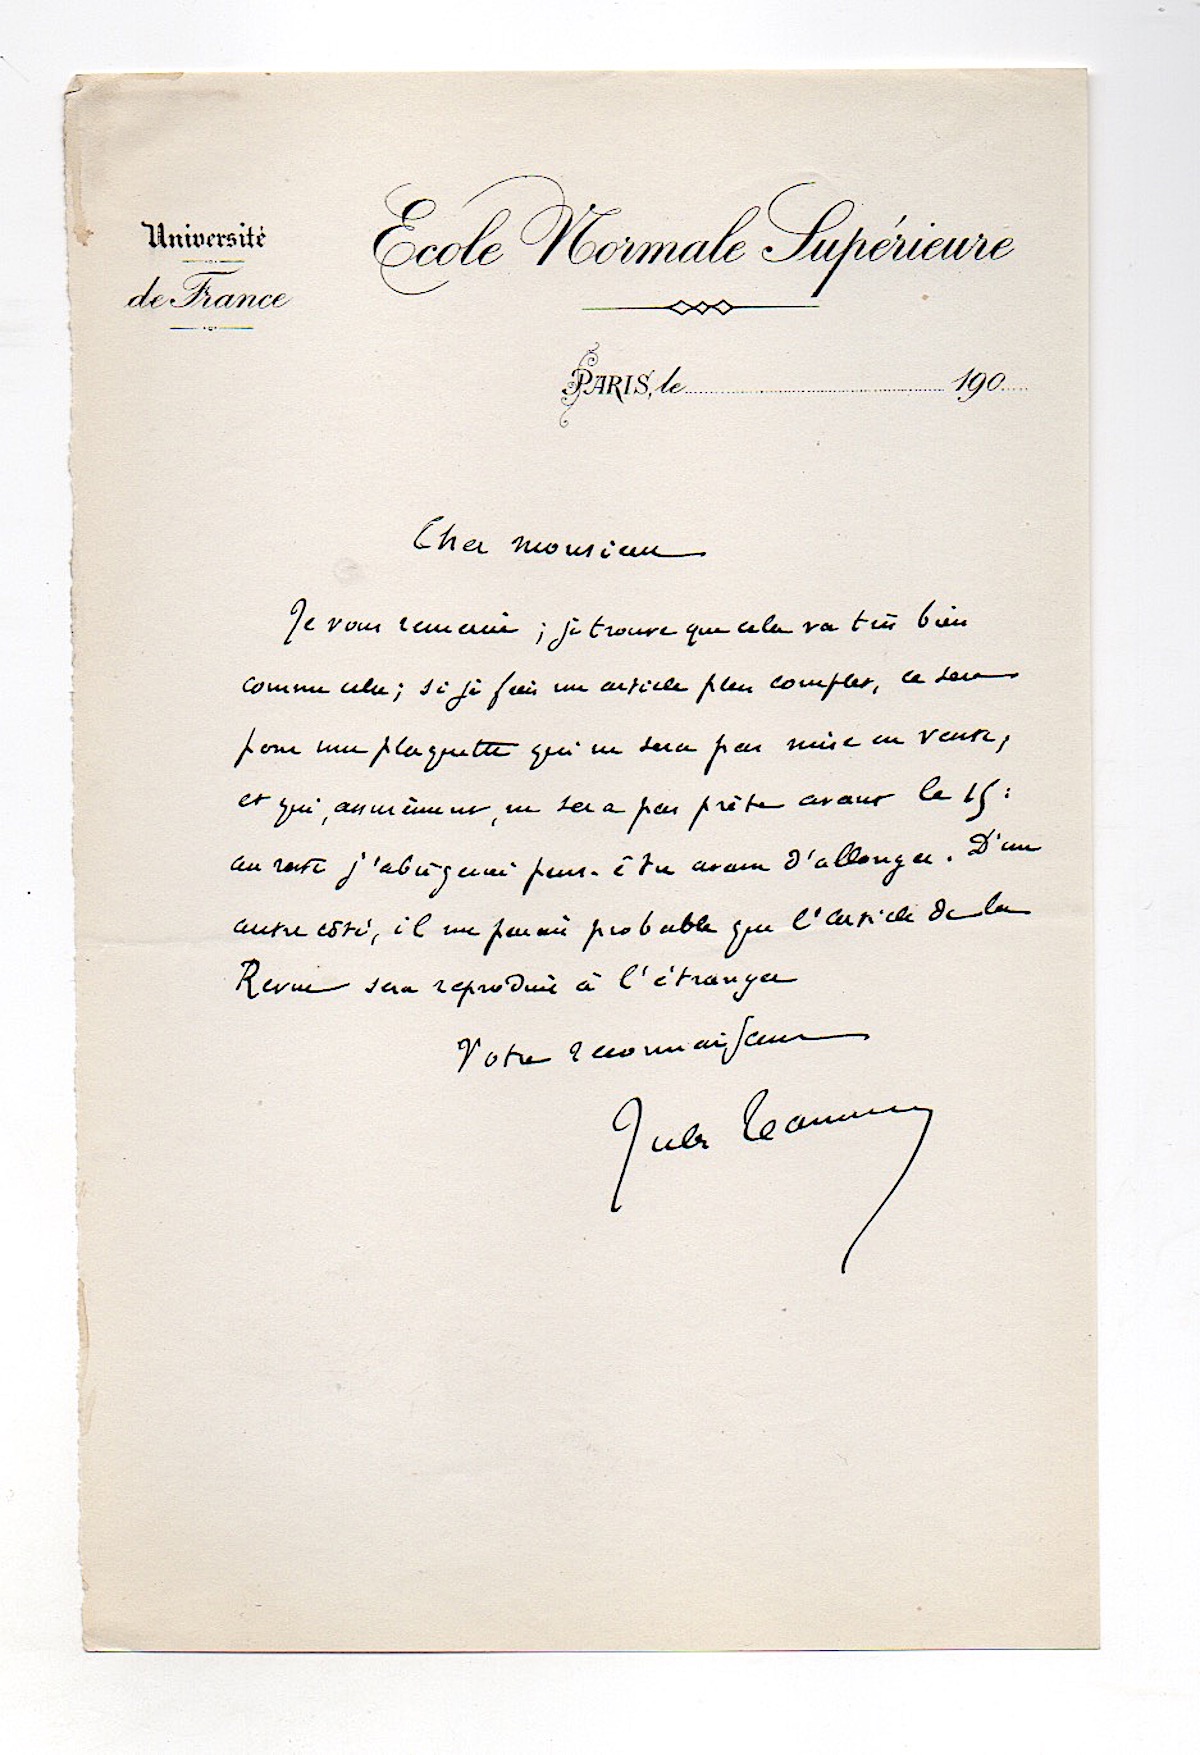 Université
de France
Ecole Normale Supérieure
PARIS, le 190
Cher monsieur
Je vous remercie ; je trouve que cela va très bien
comme cela ; si je fais un article plus complet, ce sera
pour une plaquette qui ne sera pas mise en vente,
et qui, assurément, ne sera pas prête avant le 15 :
au reste j'abrègerai peut-être avant d'allonger. D'un
autre côté, il me parait probable que l'article de la
Revue sera reproduit à l'étranger
Votre reconnaissant
Jules Tannery